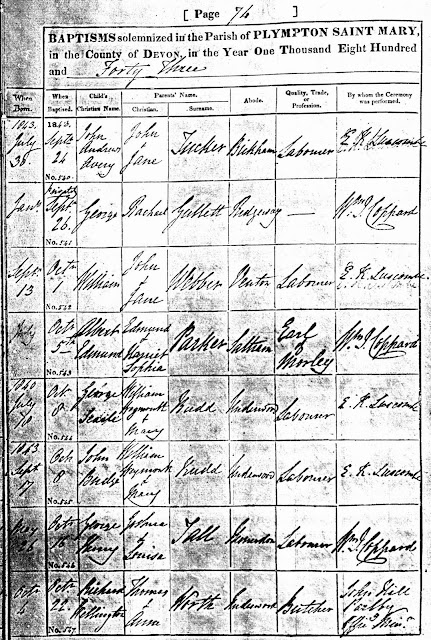 [ Page 76 ]
BAPTISMS solemnized in the Parish of PLYMPTON SAINT MARY,
in the County of DEVON, in the Year One Thousand Eight Hundred
and Forty Three
When Born. When Baptized. Child's Christian Name. Parents' Name. Christian. Surname. Abode. Quality, Trade, or Profession. By whom the Ceremony was performed.
1843. July 1843. Septr 24 No. 540. John Andrew Avery John & Jane Tucker Labourer E. K. Luscombe
Septr 26. No. 541 George Rachael Gullett Ridgeway — Wm. I. Coppard
Septr 13 Octr 1 No. 542 William John & Jane Webber Venton Labourer E. K. Luscombe
July Octr 5th No. 543 Albert Edmund Edmund & Harriet Sophia Parker Saltram Earl of Morley Wm. I. Coppard
1840 July 10 Oct 8 No. 544 George William & Mary Rudd Underwood Labourer E. K. Luscombe
1843 Sept 17 Octr 8 No. 545 John William & Mary Rudd Underwood Labourer E. K. Luscombe
May 26 Octr 16 No. 546 George Henry Joshua & Louisa Tall Hemerdon Labourer Wm. I. Coppard
Octr Octr 22 No. 547 Richard Wellington Thomas & Anna Worth Underwood Butcher John Hill